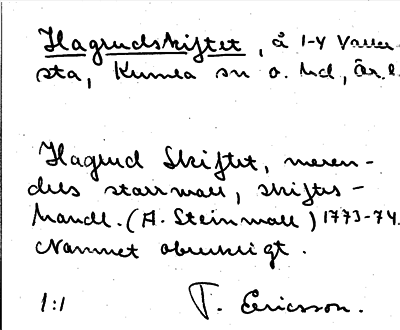 Hagrudskiftet, å 1-4 Valler-
sta, Kumla sn o. hd, Ör. l.
Hagrud Skiftet, meren-
dels starrwall, skiftes-
handl. (A. Steinwall) 1773-74.
Namnet obrukligt.
1:1 T. Ericsson.